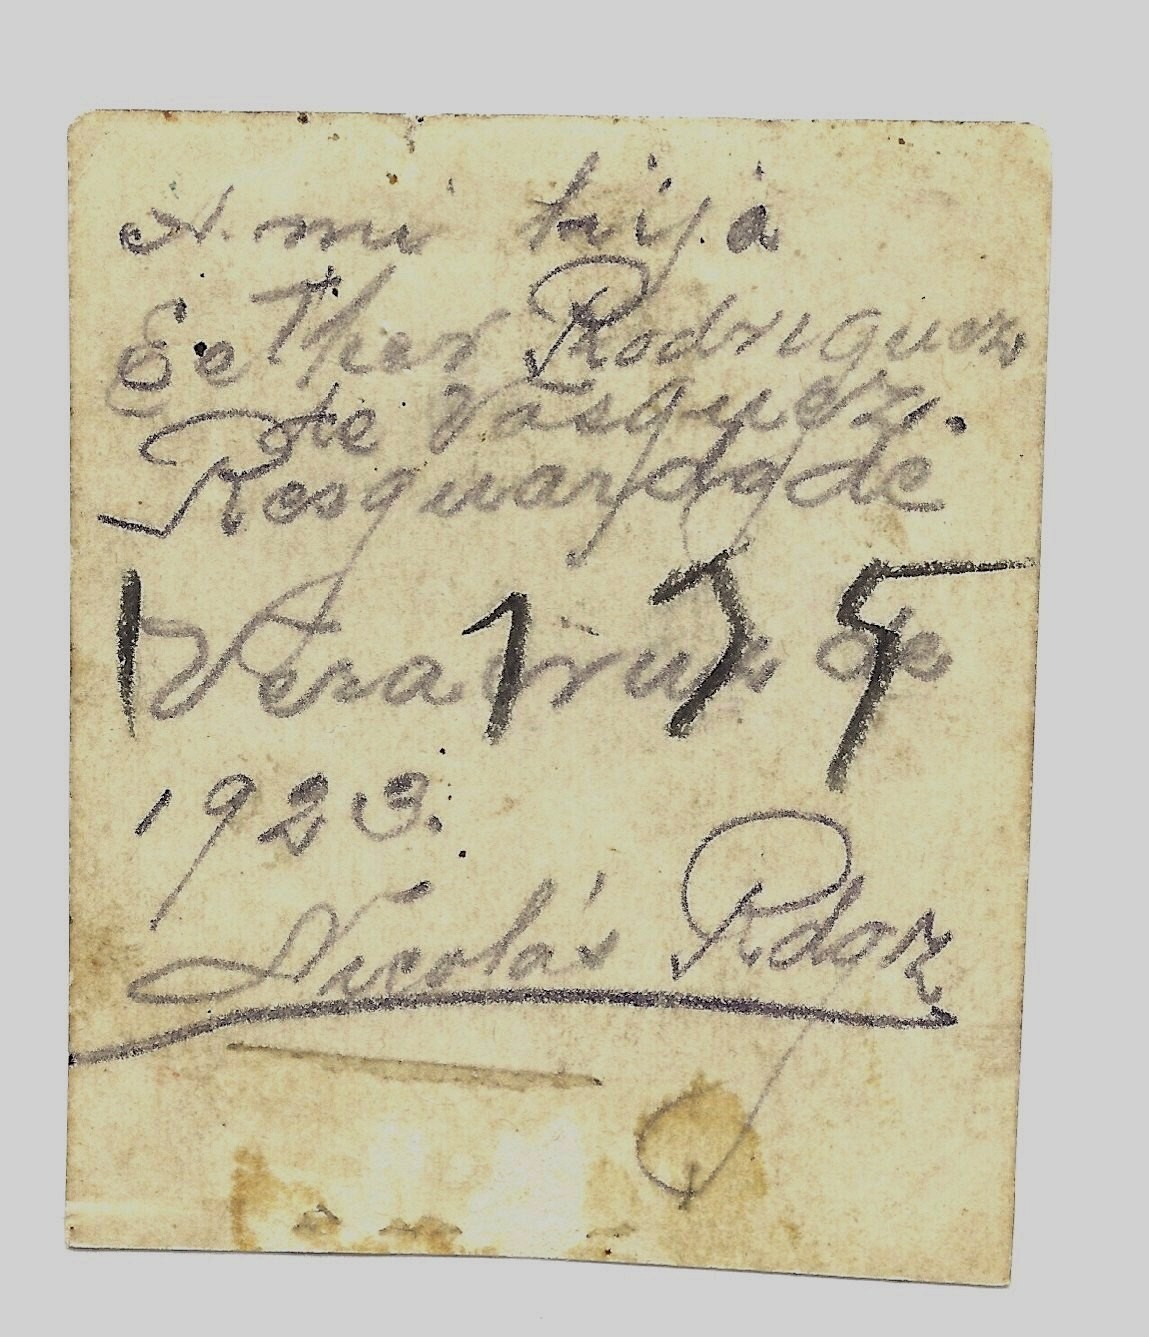 A. mi hija
Esther Rodriguez
de Vasquez.
Resguardo de
Veracruz de
1 7 7 5
1923.
Nicolás Rdgz